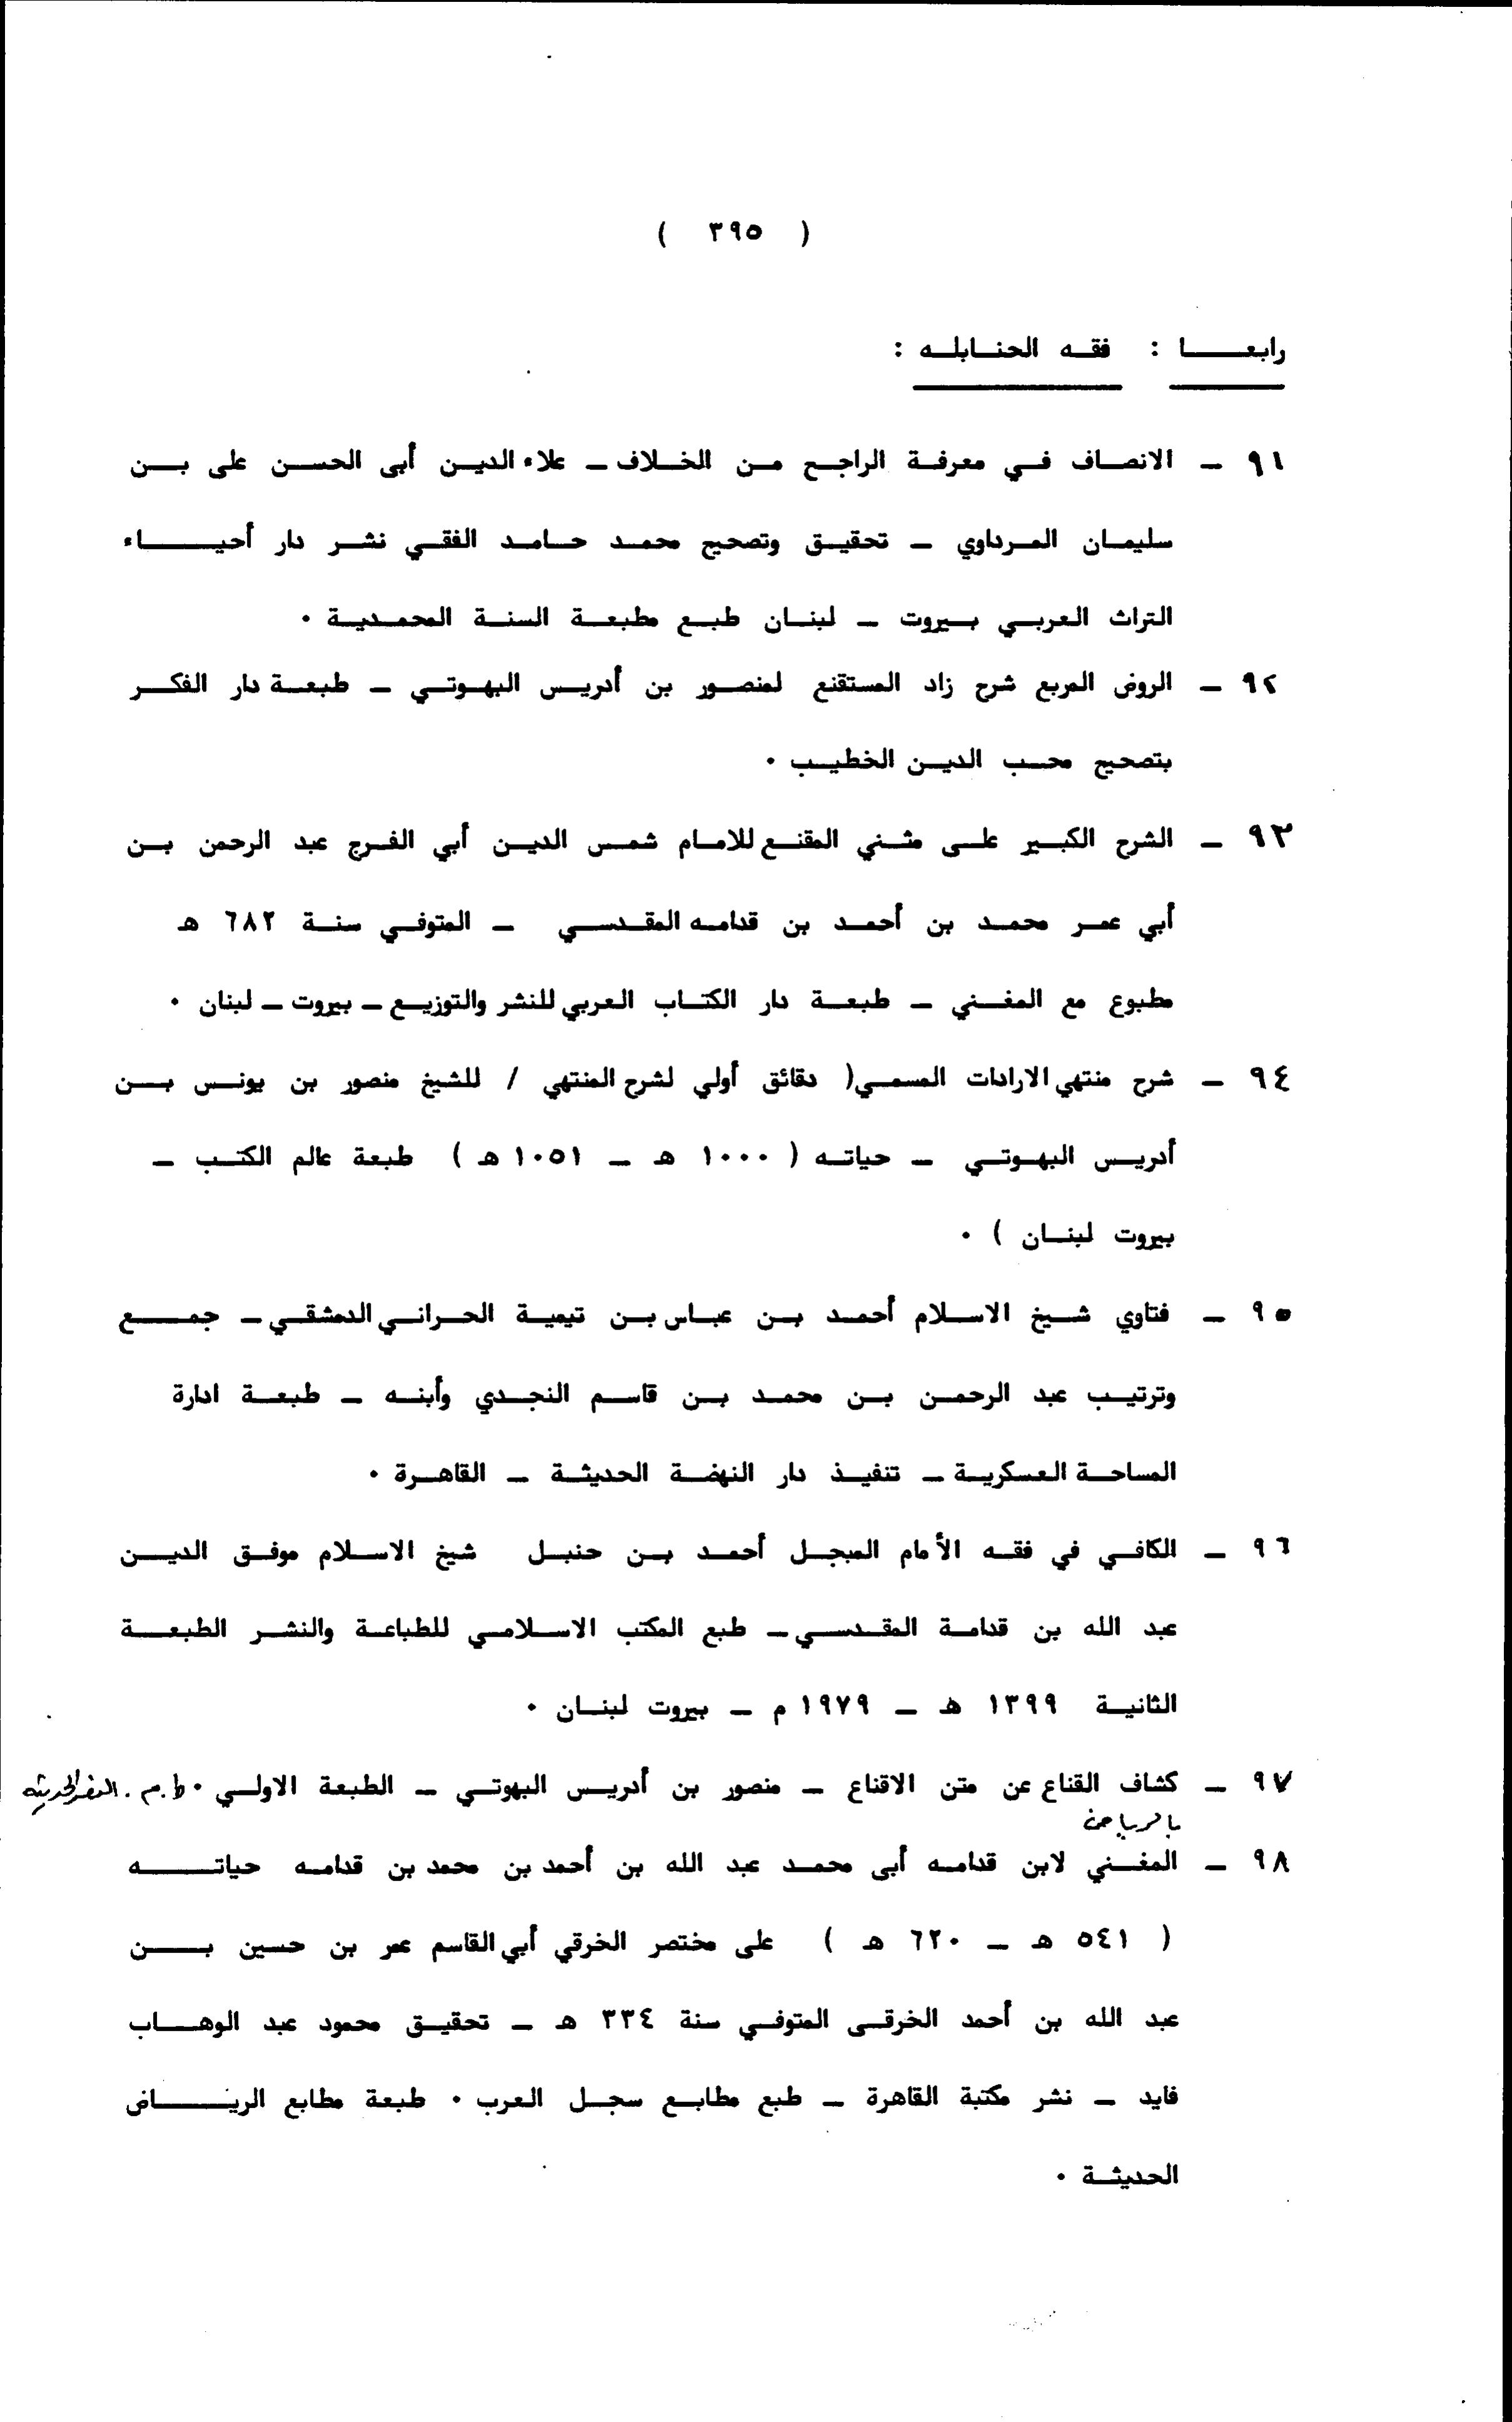 ( ٣٩٥ )
رابعا : فقه الحنابله :
٩١ – الانصاف في معرفة الراجح من الخلاف – علاء الدين أبى الحسن على بن
سليمان المرداوي – تحقيق وتصحيح محمد حامد الفقي نشر دار أحياء
التراث العربي بيروت – لبنان طبع مطبعة السنة المحمدية ٠
٩٢ – الروض المربع شرح زاد المستقنع لمنصور بن أدريس البهوتي – طبعة دار الفكر
بتصحيح محب الدين الخطيب ٠
٩٣ – الشرح الكبير على مثني المقنع للامام شمس الدين أبي الفرج عبد الرحمن بن
أبي عمر محمد بن أحمد بن قدامه المقدسي – المتوفي سنة ٦٨٢ هـ
مطبوع مع المغني – طبعة دار الكتاب العربي للنشر والتوزيع – بيروت – لبنان ٠
٩٤ – شرح منتهي الارادات المسمي ( دقائق أولي لشرح المنتهي / للشيخ منصور بن يونس بن
أدريس البهوتي – حياته ( ١٠٠٠ هـ – ١٠٥١ هـ ) طبعة عالم الكتب –
بيروت لبنان ) ٠
٩٥ – فتاوي شيخ الاسلام أحمد بن عباس بن تيمية الحراني الدمشقي – جمع
وترتيب عبد الرحمن بن محمد بن قاسم النجدي وأبنه – طبعة ادارة
المساحة العسكرية – تنفيذ دار النهضة الحديثة – القاهرة ٠
٩٦ – الكافي في فقه الأمام المبجل أحمد بن حنبل شيخ الاسلام موفق الدين
عبد الله بن قدامة المقدسي – طبع المكتب الاسلامي للطباعة والنشر الطبعة
الثانية ١٣٩٩ هـ – ١٩٧٩ م – بيروت لبنان ٠
٩٧ – كشاف القناع عن متن الاقناع – منصور بن أدريس البهوتي – الطبعة الاولي ٠ ط.م. النصر الحديثه
بالرياض
٩٨ – المغني لابن قدامه أبى محمد عبد الله بن أحمد بن محمد بن قدامه حياته
( ٥٤١ هـ – ٦٢٠ هـ ) على مختصر الخرقي أبي القاسم عمر بن حسين بن
عبد الله بن أحمد الخرقى المتوفي سنة ٣٣٤ هـ – تحقيق محمود عبد الوهاب
فايد – نشر مكتبة القاهرة – طبع مطابع سجل العرب ٠ طبعة مطابع الرياض
الحديثة ٠